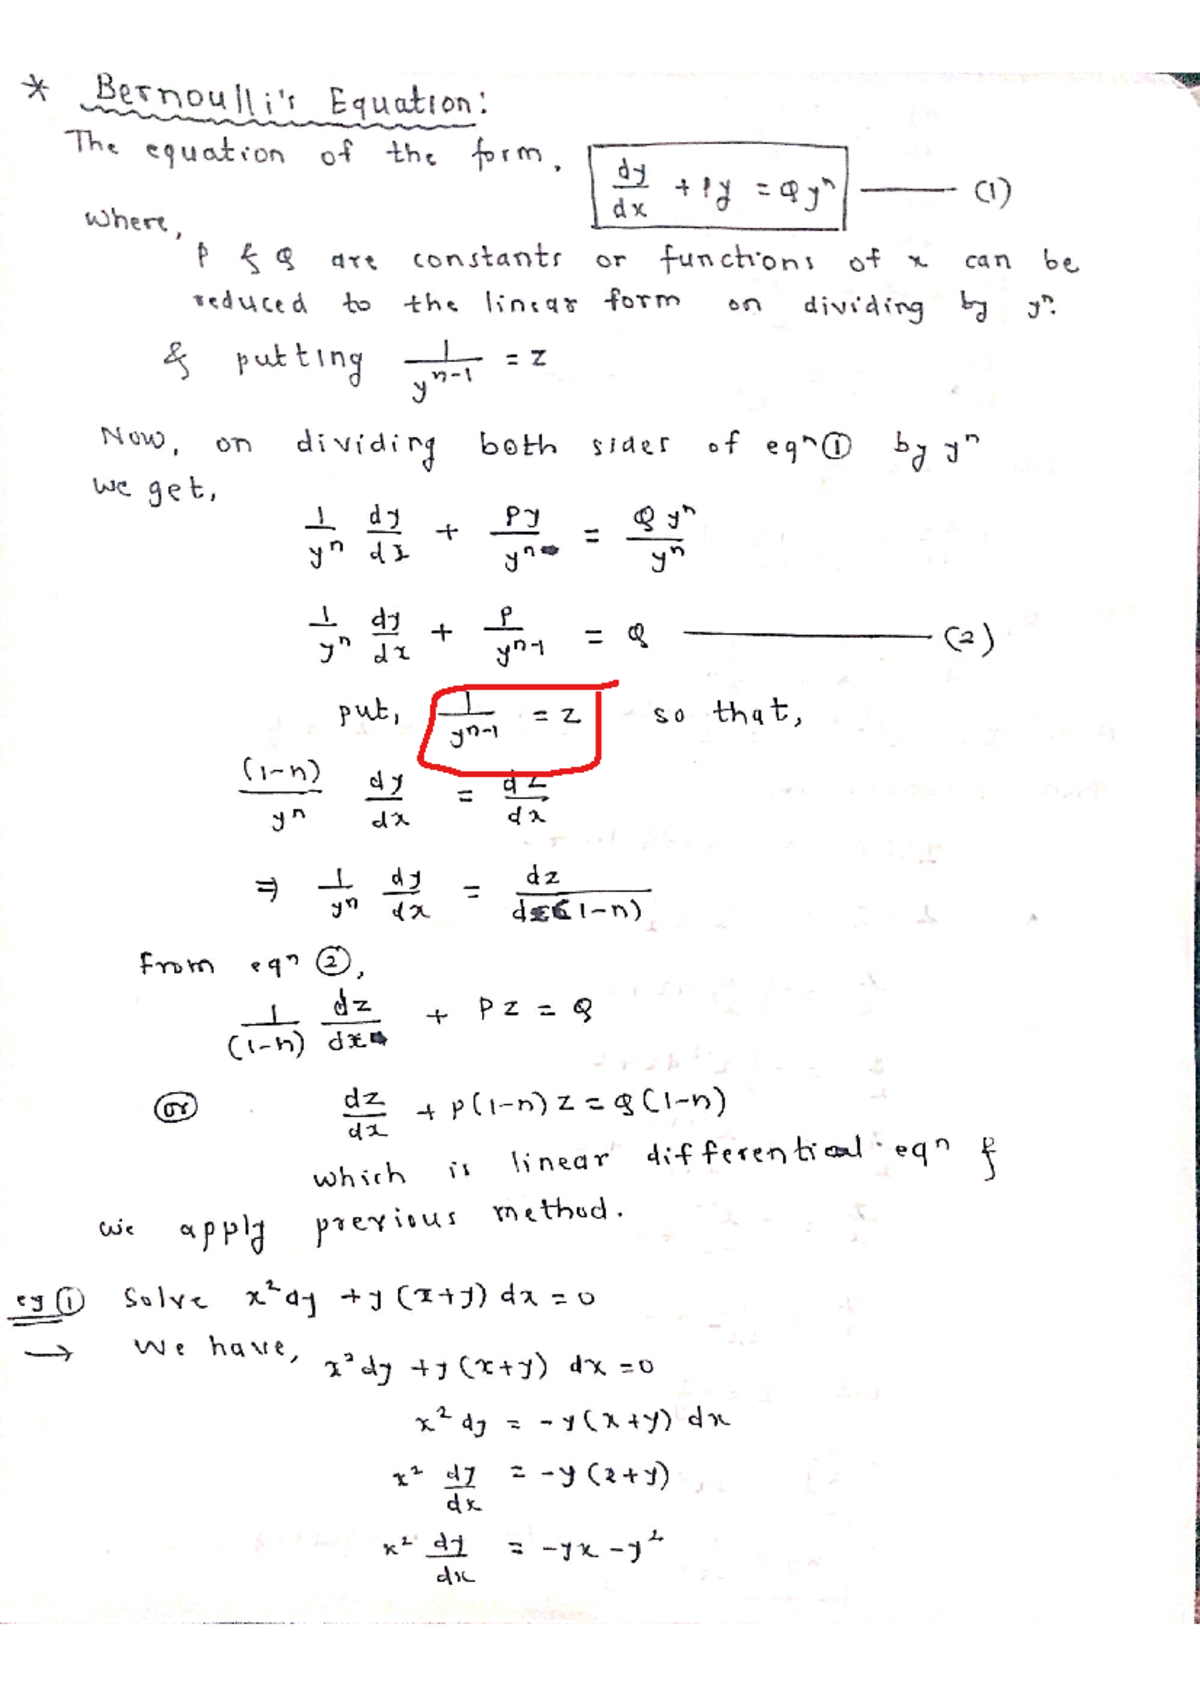 * Bernoulli's Equation:
The equation of the form, dy/dx + Py = Qy^n —— (1)
where,
P & Q are constants or functions of x can be
reduced to the linear form on dividing by y^n.
& putting 1/y^(n-1) = z
Now, on dividing both sides of eqn ① by y^n
we get,
1/y^n dy/dx + Py/y^n = Qy^n/y^n
1/y^n dy/dx + P/y^(n-1) = Q —— (2)
put, 1/y^(n-1) = z so that,
(1-n)/y^n dy/dx = dz/dx
⇒ 1/y^n dy/dx = dz/dx(1-n)
From eqn ②,
1/(1-n) dz/dx + Pz = Q
(or) dz/dx + P(1-n)z = Q(1-n)
which is linear differential eqn &
we apply previous method.
eg ① Solve x²dy + y(x+y)dx = 0
→ We have,
x²dy + y(x+y) dx = 0
x² dy = -y(x+y) dx
x² dy/dx = -y(x+y)
x² dy/dx = -yx - y²